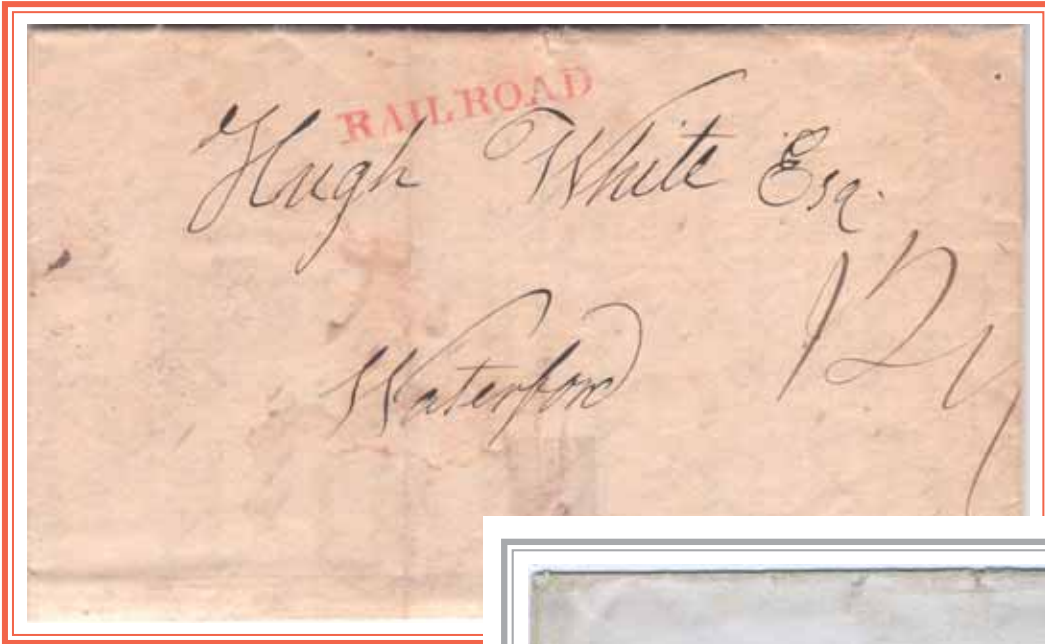 RAILROAD
Hugh White Esq.
Waterford
12